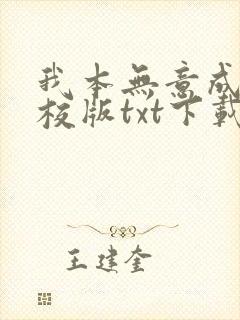 我本無意成
校版txt下載
王建奎